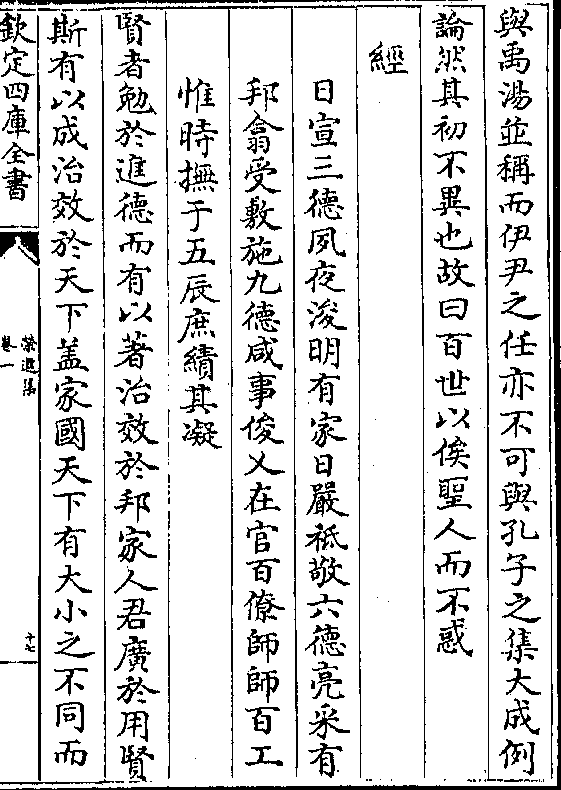 與禹湯並稱而伊尹之任亦不可與孔子之集大成例
論然其初不異也故曰百世以俟聖人而不惑
經
日宣三德夙夜浚明有家日嚴祗敬六德亮采有
邦翕受敷施九德咸事俊乂在官百僚師師百工
惟時撫于五辰庶績其凝
賢者勉於進德而有以著治效於邦家人君廣於用賢
斯有以成治效於天下盖家國天下有大小之不同而
欽定四庫全書
卷一
十七